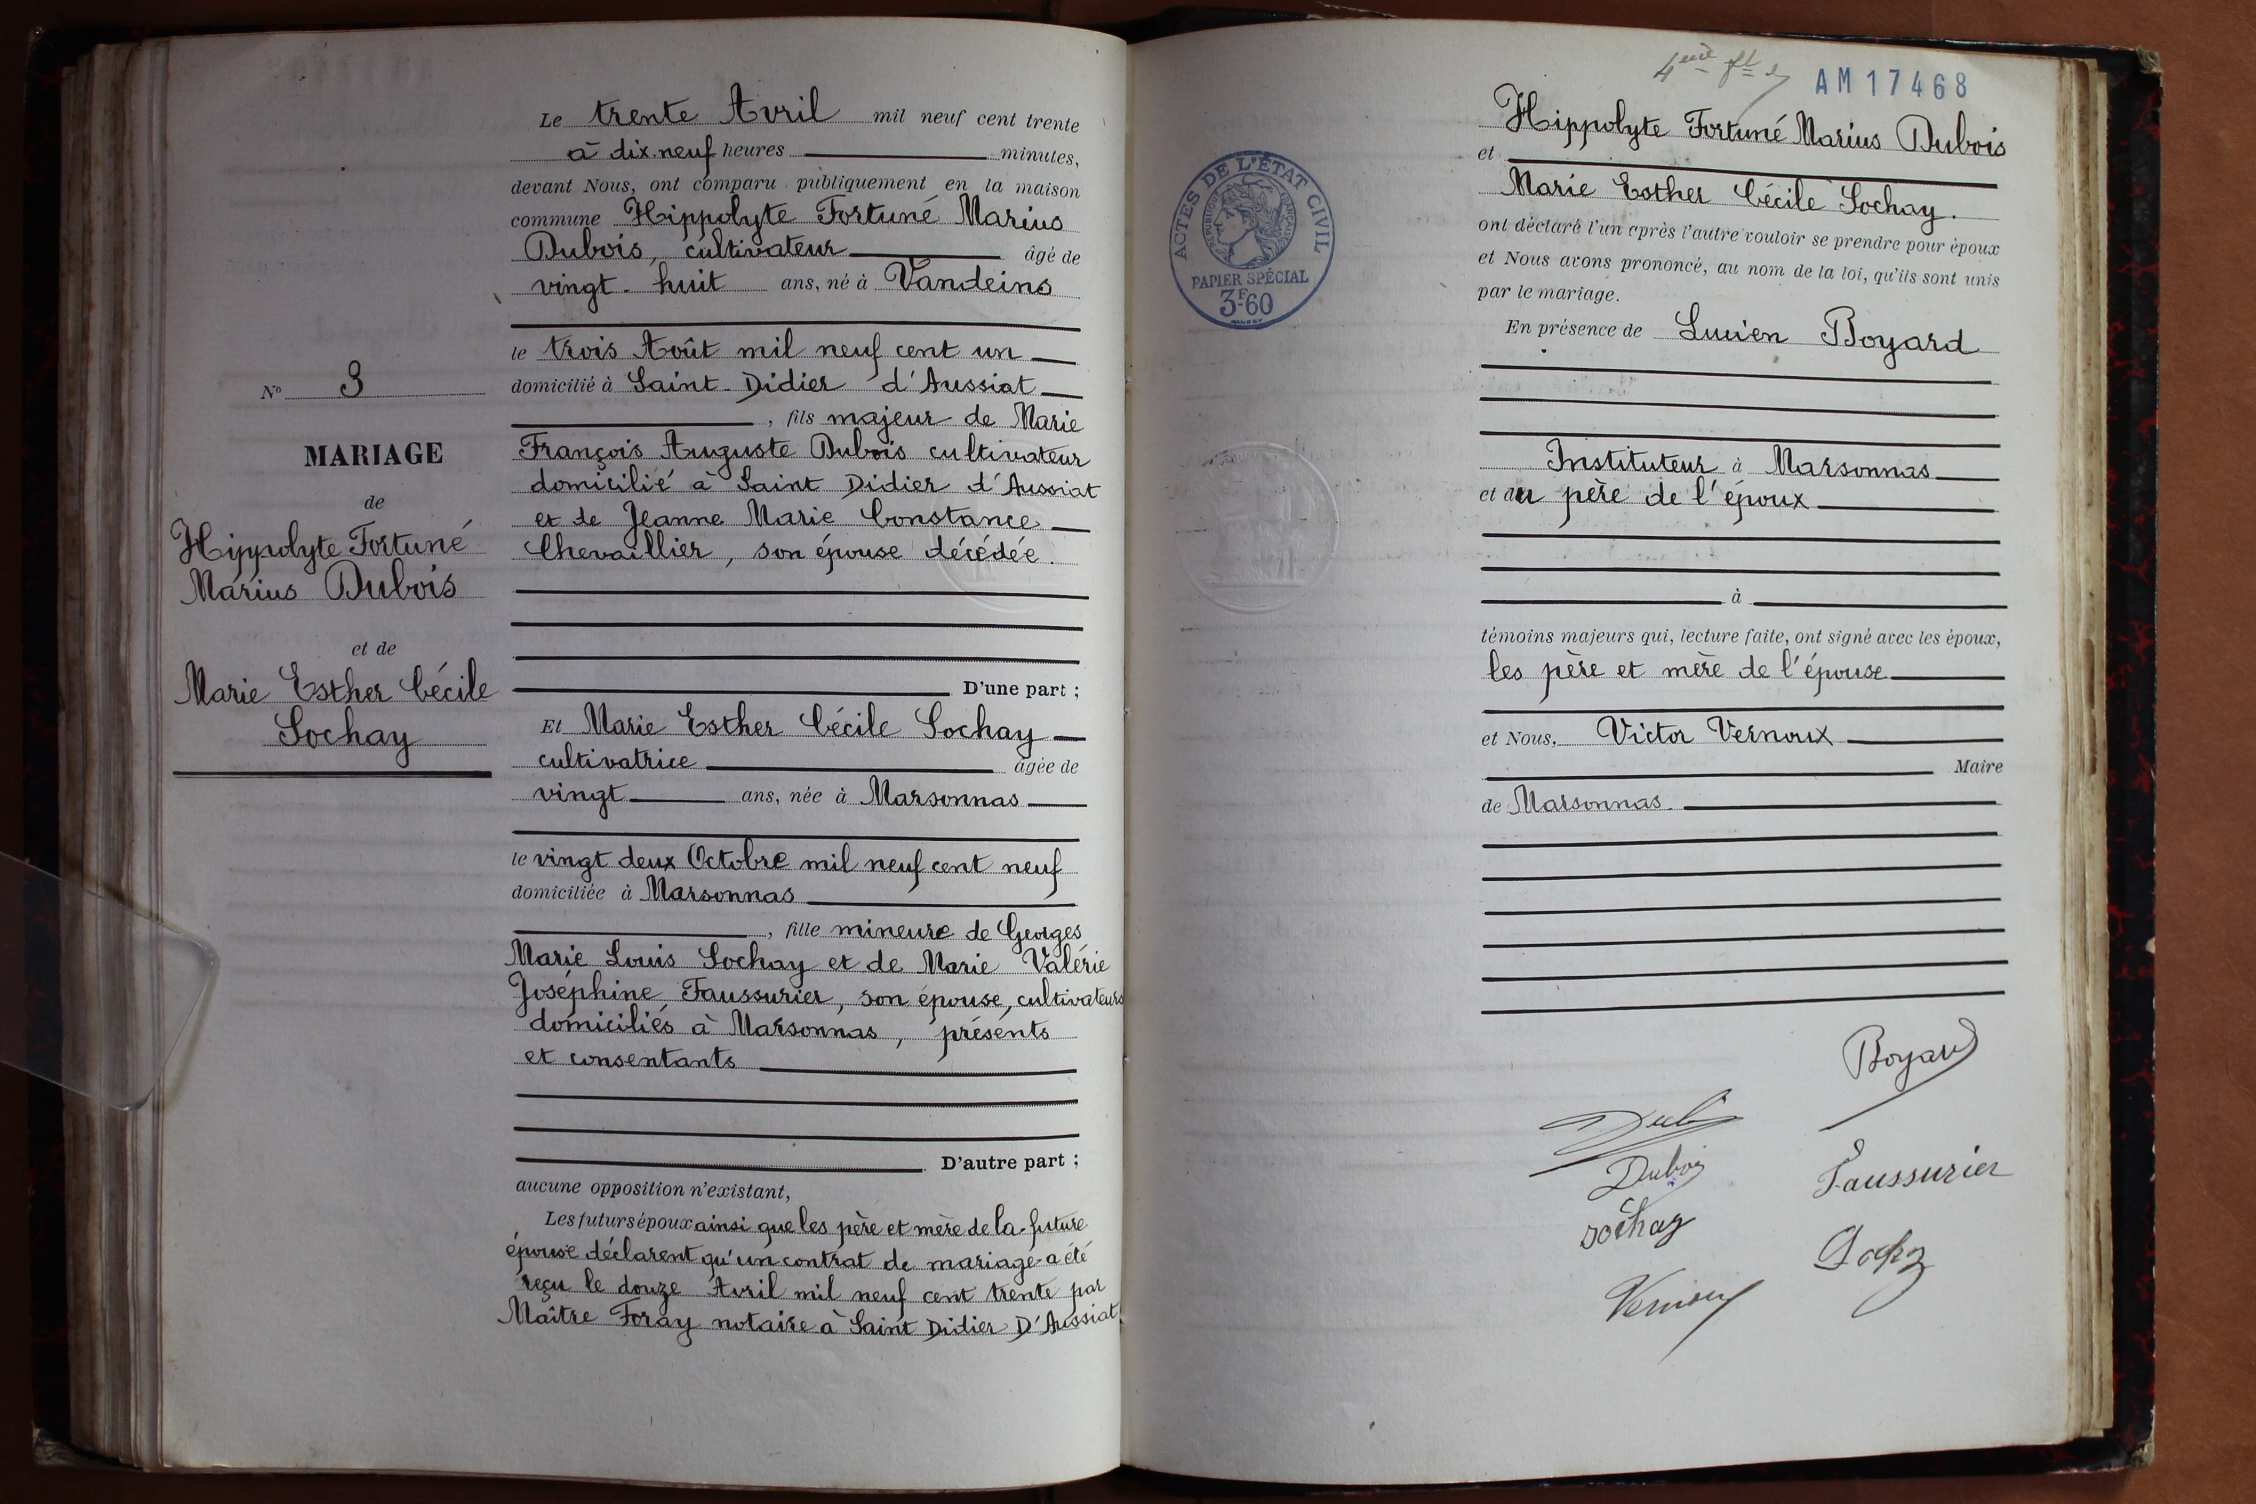 Nº 3
MARIAGE
de
Hippolyte Fortuné
Marius Dubois
et de
Marie Esther Cécile
Sochay
Le trente Avril mil neuf cent trente
à dix-neuf heures minutes,
devant Nous, ont comparu publiquement en la maison
commune Hippolyte Fortuné Marius
Dubois, cultivateur âgé de
vingt-huit ans, né à Vandeins
le trois Août mil neuf cent un
domicilié à Saint-Didier d'Aussiat
, fils majeur de Marie
François Auguste Dubois cultivateur
domicilié à Saint Didier d'Aussiat
et de Jeanne Marie Constance
Chevaillier, son épouse décédée.
D'une part ;
Et Marie Esther Cécile Sochay
cultivatrice âgée de
vingt ans, née à Marsonnas
le vingt deux Octobre mil neuf cent neuf
domiciliée à Marsonnas
, fille mineure de Georges
Marie Louis Sochay et de Marie Valérie
Joséphine Faussurier, son épouse, cultivateurs
domiciliés à Marsonnas, présents
et consentants
D'autre part ;
aucune opposition n'existant,
Les futurs époux ainsi que les père et mère de la future
épouse déclarent qu'un contrat de mariage a été
reçu le douze Avril mil neuf cent trente par
Maître Foray notaire à Saint Didier D'Aussiat.
AM17468
ACTES DE L'ÉTAT CIVIL
RÉPUBLIQUE FRANÇAISE
PAPIER SPÉCIAL
3F-60
Hippolyte Fortuné Marius Dubois
et
Marie Esther Cécile Sochay.
ont déclaré l'un après l'autre vouloir se prendre pour époux
et Nous avons prononcé, au nom de la loi, qu'ils sont unis
par le mariage.
En présence de Lucien Boyard
Instituteur à Marsonnas
et du père de l'époux
à
témoins majeurs qui, lecture faite, ont signé avec les époux,
les père et mère de l'épouse
et Nous, Victor Vernoux
Maire
de Marsonnas
Boyard
Dubois
Faussurier
Sochay
Vernoux